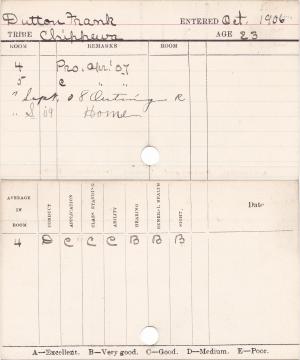 Dutton Frank ENTERED Oct. 1906
TRIBE Chippewa AGE 23
ROOM REMARKS ROOM
4 Pro. Apr. '07
5 C " "
" Sept. 08 Outing R
" S '09 Home
AVERAGE IN ROOM CONDUCT APPLICATION CLASS STANDING ABILITY HEARING GENERAL HEALTH SIGHT. Date
4 D C C C B B B
A—Excellent. B—Very good. C—Good. D—Medium. E—Poor.